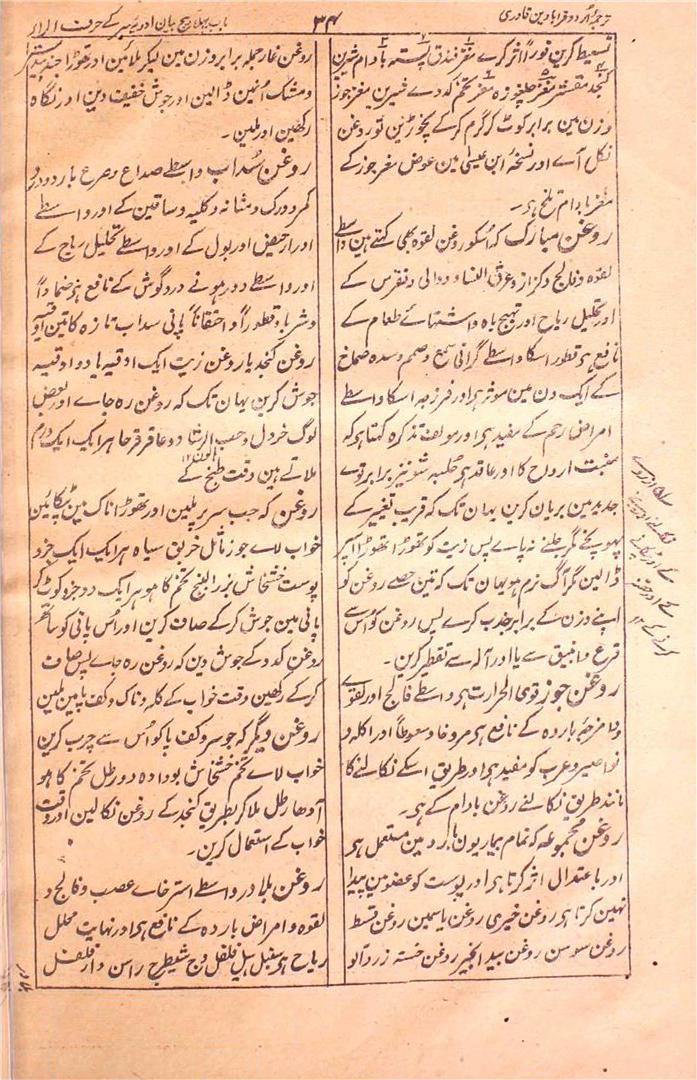 ترجمۂ اردو قرابادین قادری
۳۴
باب پہلا بیچ بیان ادویہ سر کے حرف الرا
تسعیط کرین فوراً اثر کرے مغز فندق پستہ بادام شیرین
کنجد مقشر مغز چلغوزہ مغز تخم کدوے شیرین مغز جوز
وزن مین برابر کوٹ کر گرم کرکے نچوڑین تو روغن
نکل آے اور نسخۂ ابن عیسیٰ مین عوض مغز جوز کے
مغز بادام تلخ ہی۔
روغن مبارک کہ اُسکو روغن لقوہ بھی کہتے ہین واسطے
لقوہ و فالج و کزاز و عرق النسا و دوالی و نقرس کے
اور تحلیل ریاح اور تہیج باہ و اشتہاے طعام کے
نافع ہی قطور اسکا واسطے گرانی سمع و صمم و سدہ صماخ
کے ایک دن مین موثر ہی اور فرزجہ اسکا واسطے
امراض رحم کے مفید ہی اور مولف تذکرہ کہتا ہی کہ
منبت ارواح کا اور عاقد ہی حلبہ شونیز برابر توے
جدید مین بریان کرین یہان تک کہ قریب تغیر کے
پہونچے مگر جلنے نہ پاے پس زیت کو تھوڑا تھوڑا اسپر
ڈالین مگر آگ نرم ہو یہان تک کہ تین حصے روغن کو
اپنے وزن کے برابر جذب کرے پس روغن کو اُس سے
قرع و انبیق سے یا اور آلہ سے تقطیر کرین۔
روغن جوز قوی الحرارت ہی واسطے فالج اور لقوے
و امزجۂ باردہ کے نافع ہی مروخاً و سعوطاً اور اکلہ و
نواصیر و عرب کو مفید ہی اور طریق اسکے نکالنے کا
مانند طریق نکالنے روغن بادام کے ہی۔
روغن مجموعہ کہ تمام بیماریون بارد مین مستعمل ہی
اور باعتدال اثر کرتا ہی اور پوست کو عضو مین پیدا
نہین کرتا ہی روغن خیری روغن یاسمین روغن قسط
روغن سوسن روغن بید انجیر روغن خستہ زردآلو
روغن غار جملہ برابر وزن مین لیکر ملائین اور تھوڑا جند بیدستر
و مشک اُنین ڈالین اور جوش خفیف دین اور نگاہ
رکھین اور ملین۔
روغن سُداب واسطے صداع و صرع بارد و درد
کمر و ورک و مثانہ و کلیہ و ساقین کے اور واسطے
ادرار حیض اور بول کے اور واسطے تحلیل ریاح کے
اور واسطے دور ہونے درد گوش کے نافع ہی ضماداً
و شرباً و قطوراً و احتقاناً پانی سداب تازہ کا تین اوقیہ
روغن کنجد یا روغن زیت ایک اوقیہ یا دو اوقیہ
جوش کرین یہان تک کہ روغن رہ جاے اور بعض
لوگ خردل و حب الرشاد و عاقرقرحا ہر ایک ایک درم
ملاتے ہین وقت طبخ کے
روغن کہ جب سر پر ملین اور تھوڑا ناک مین ٹپکائین
خواب لاے جوز ماثل خربق سیاہ ہر ایک ایک جزو
پوست خشخاش بزر البنج تخم کاہو ہر ایک دو جزو کوٹ کر
پانی مین جوش کرکے صاف کرین اور اُس پانی کو ساتھ
روغن کدو کے جوش دین کہ روغن رہ جاے پس صاف
کرکے رکھین وقت خواب کے کلہ و ناک و کف پا مین ملین
روغن دیگر کہ جو سر و کف پا کو اُس سے چرب کرین
خواب لاے تخم خشخاش بودادہ دو رطل تخم کاہو
آدھا رطل ملاکر بطریق کنجد کے روغن نکالین اور وقت
خواب کے استعمال کرین۔
روغن بلادر واسطے استرخاے عصب و فالج و
لقوہ و امراض باردہ کے نافع ہی اور نہایت محلل
ریاح ہی سنبل ہیل فلفل وج شیطرج راسن دارفلفل